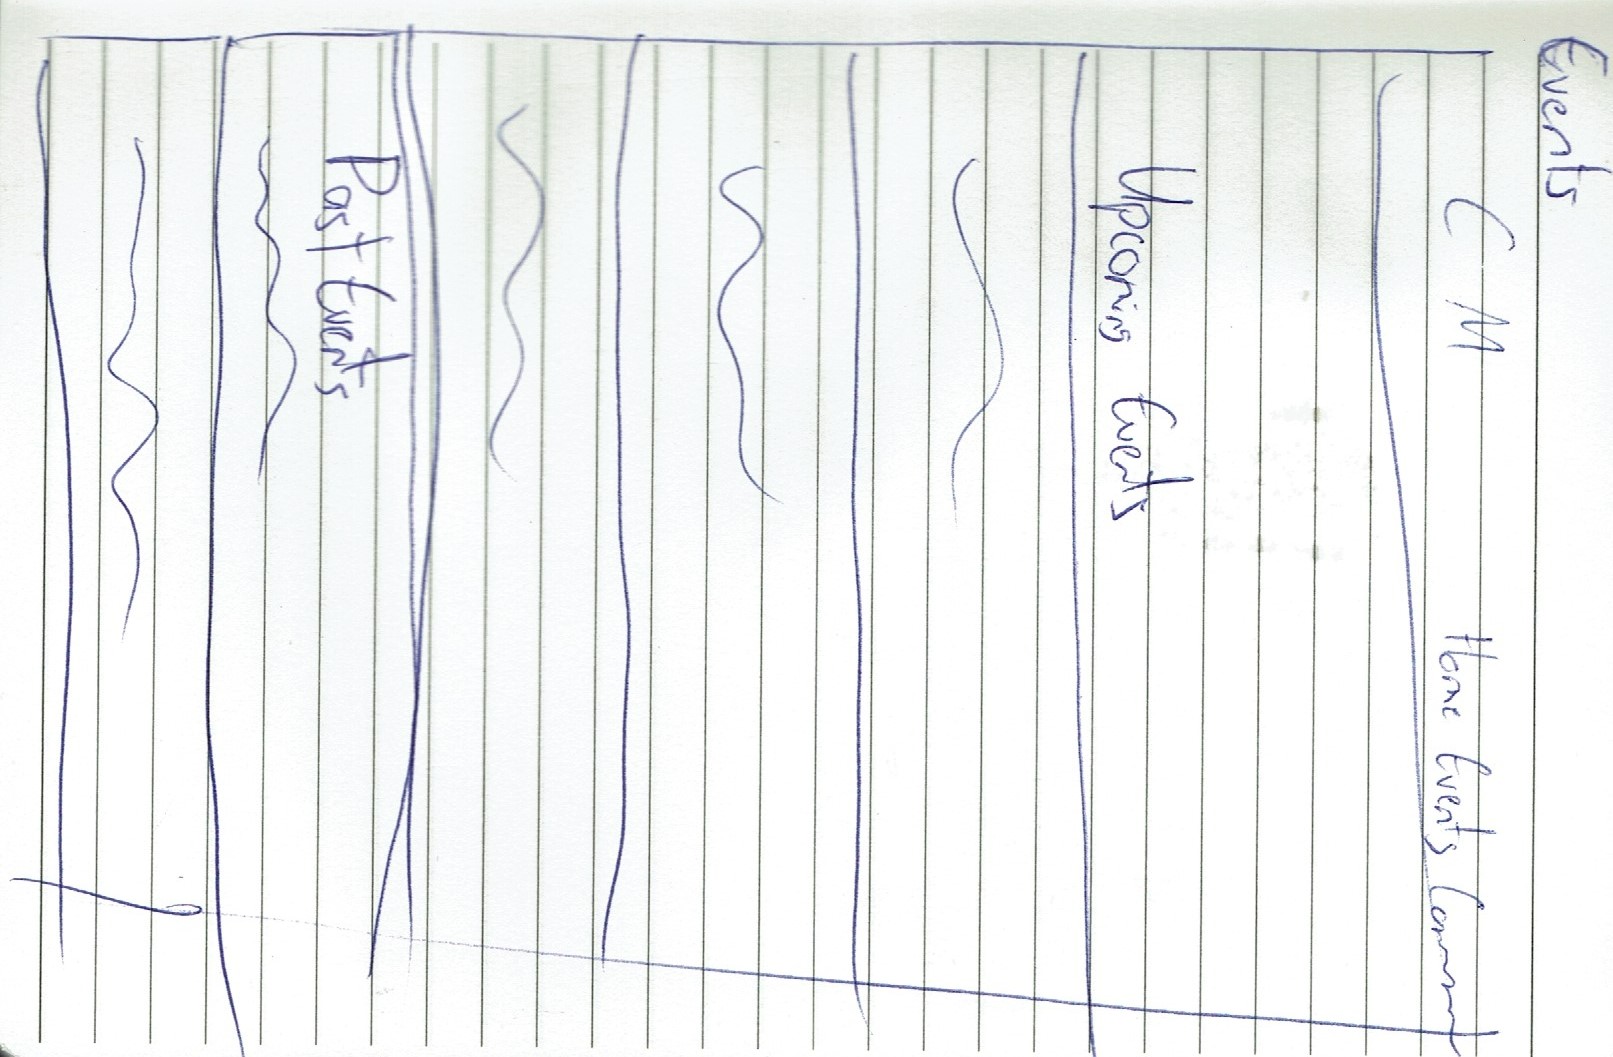 Events
C M Home Events
Upcoming Events
Past Events